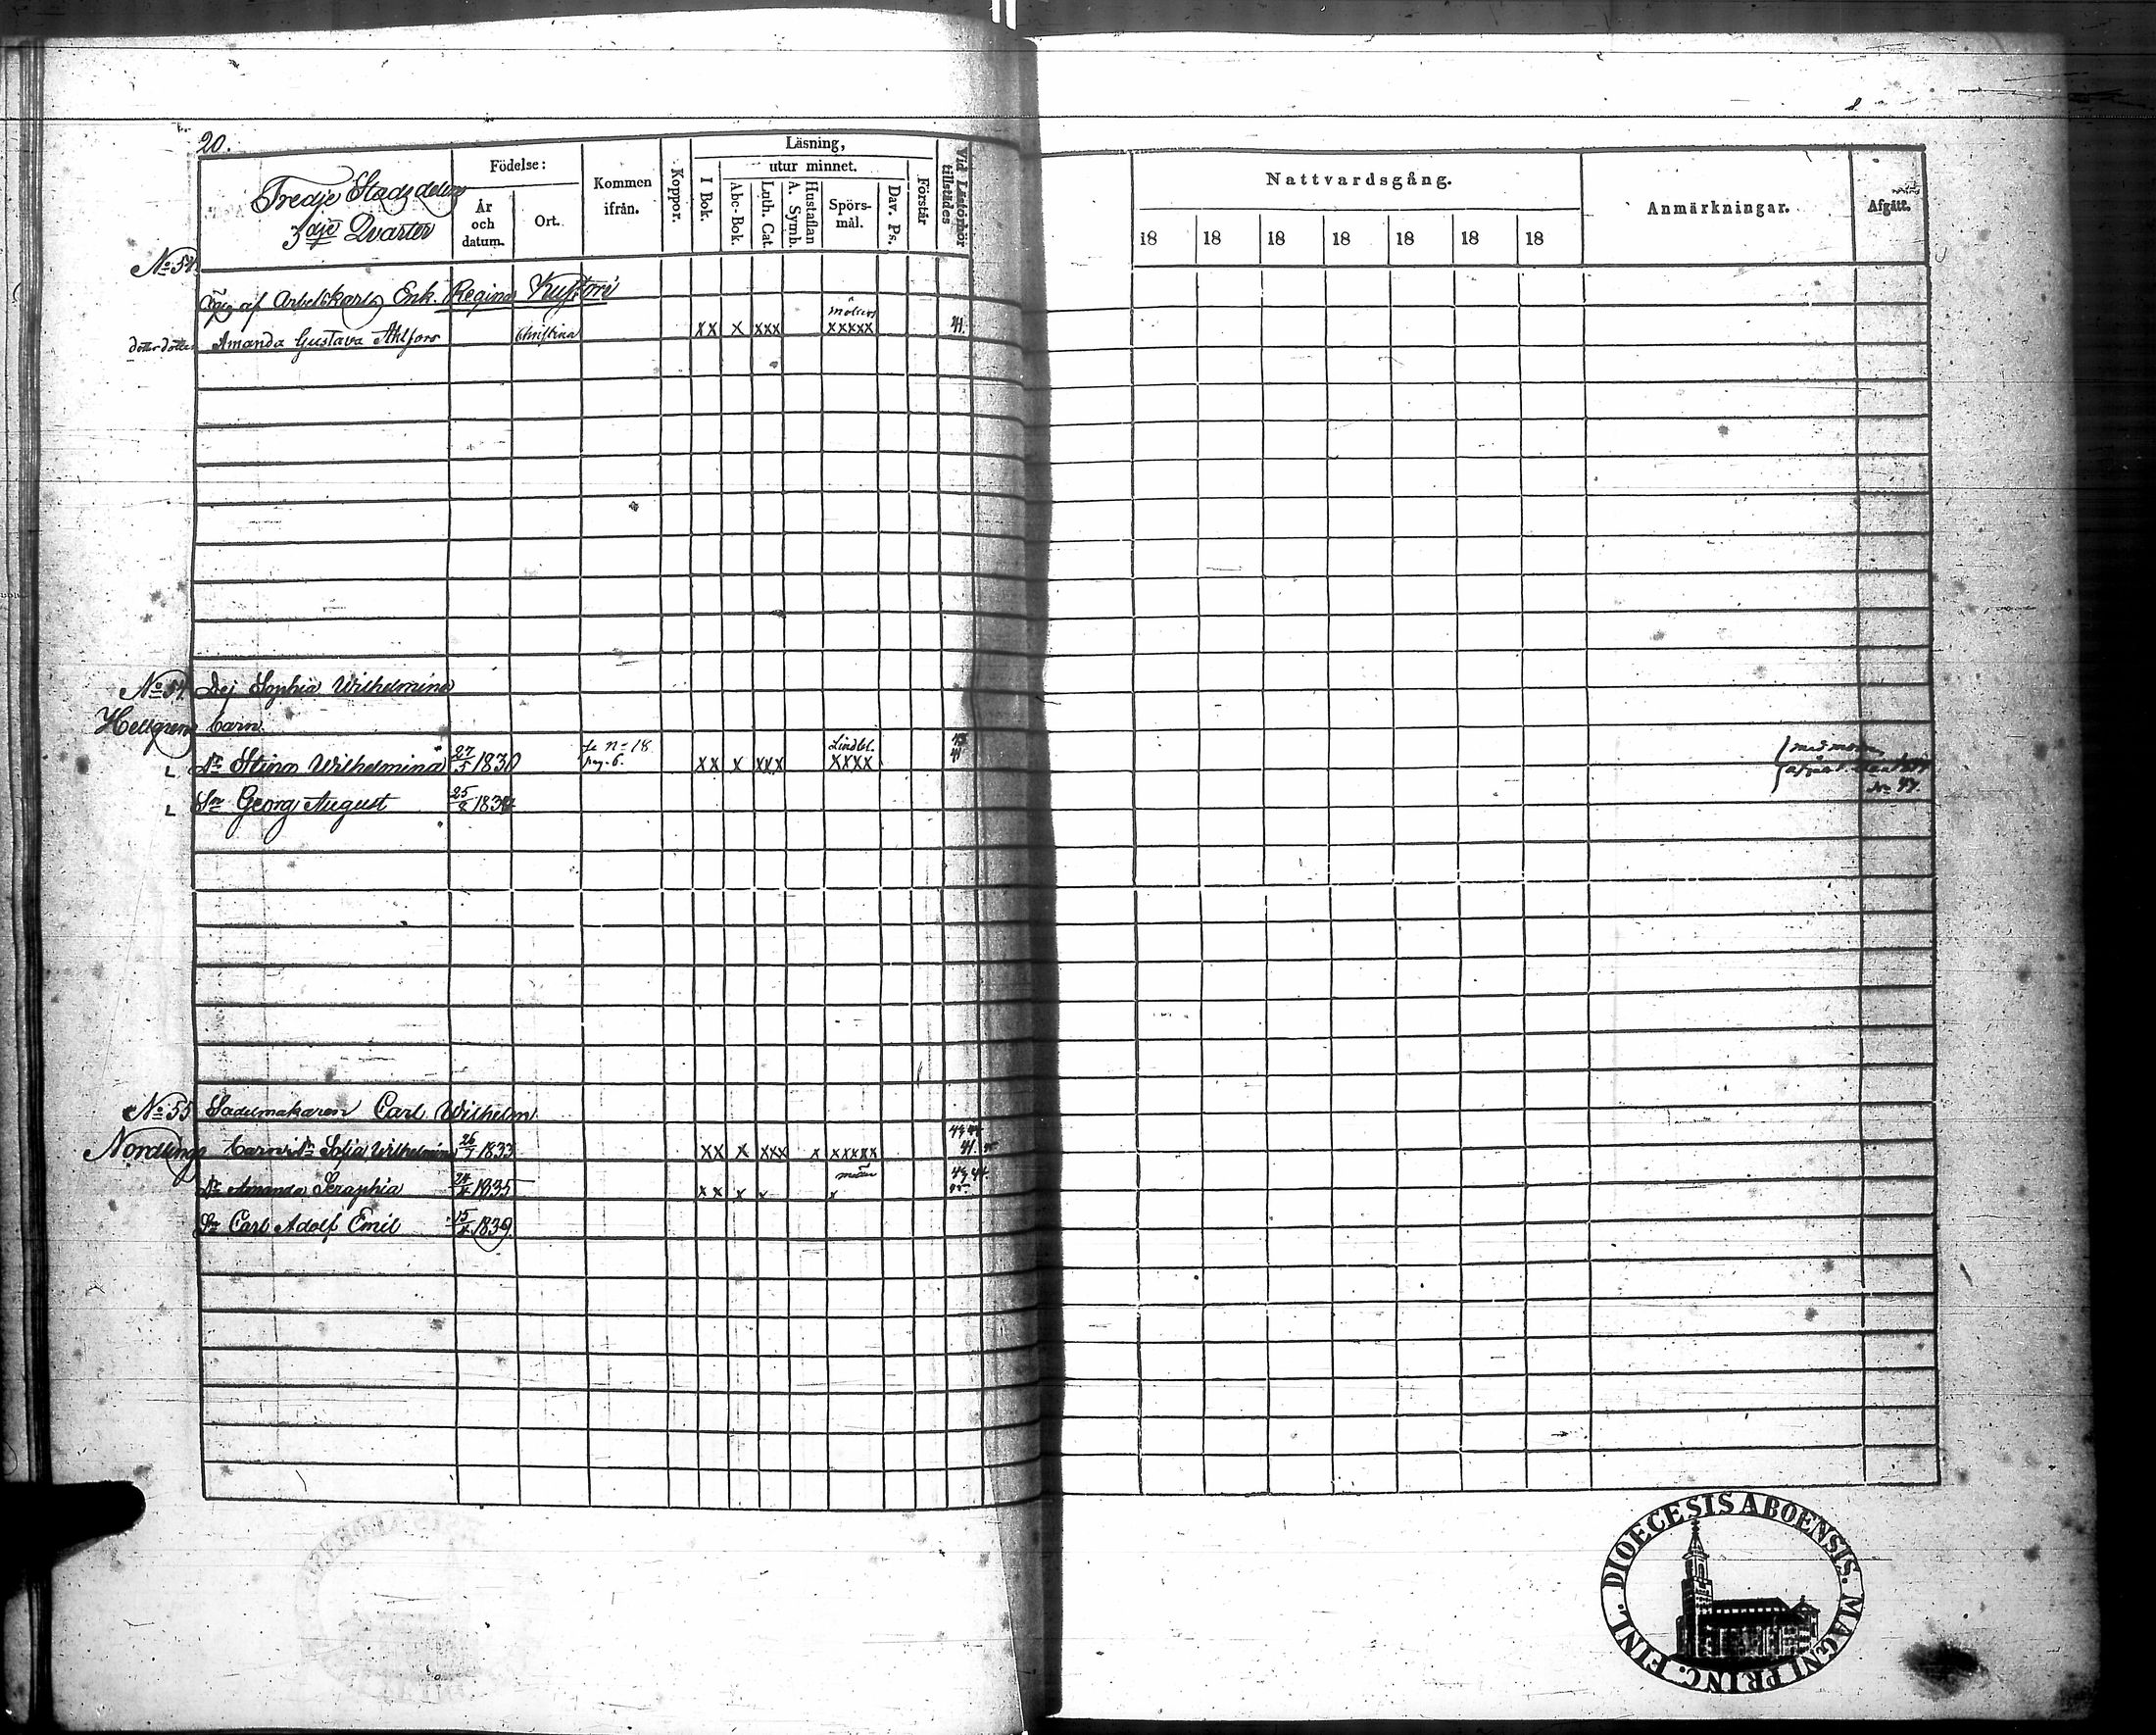 20.
Tredje Stadsdelen
3dje Qvarter
Födelse:
År och datum.
Ort.
Kommen ifrån.
Koppor.
Läsning,
I Bok.
utur minnet.
Abc-Bok.
Luth. Cat.
Hustaflan A. Symb.
Spörs-mål.
Dav. Ps.
Förstår
Vid Läsförhör tillstädes
Nattvardsgång.
18 18 18 18 18 18 18
Anmärkningar.
Afgått.
No 54.
af Arbetskarls Enk. Regina
dotter dotter Amanda Gustava Ahlfors Christina xx x xxx xxxxx 41.
No 54. Dej Sophia Wilhelmina
Hellgrens barn
Dr Stina Wilhelmina 27/5 1830 se n= 18 pag. 6. xx x xxx Lindbl. xxxx 41
med modren
Sn Georg August 25/8 1834
No 55 Sadelmakaren Carl Wilhelm
Nordlings barn Dr Sofia Wilhelmina 26/7 1833 xx x xxx x xxxxx 41.
Dr Amanda Seraphia 1835 xx x x x
Sn Carl Adolf Emil 15/4 1839.
DIOECESIS ABOENSIS. MAGNI PRINC. FINL.